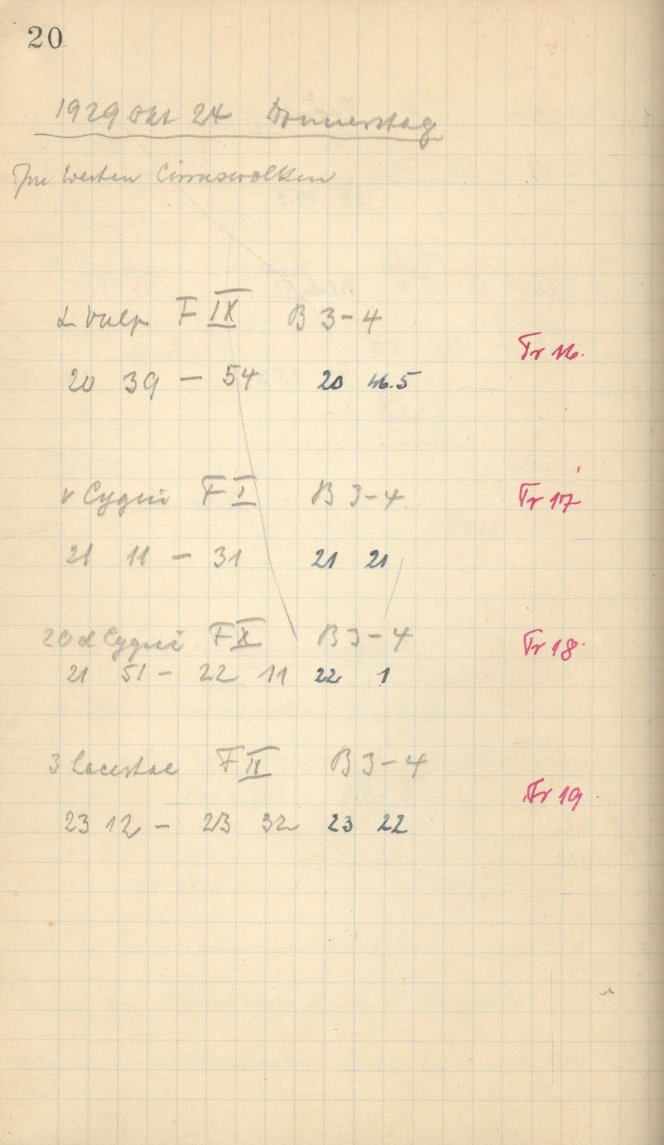 20
1929 Okt 24 Donnerstag
Im Westen Cirruswolken
α Vulp F IX B 3-4
Tr 16.
20 39 - 54 20 46.5
ν Cygni F I B 3-4
Tr 17
21 11 - 31 21 21
20 α Cygni F X B 3-4
Tr 18.
21 51 - 22 11 22 1
3 Lacertae F II B 3-4
Tr 19.
23 12 - 23 32 23 22